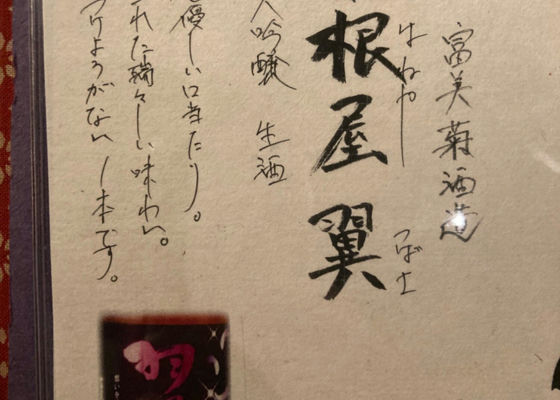 富美菊酒造
はねや
根屋 翼
つばさ
吟醸 生酒
優しい口当たり。
れた瑞々しい味わい。
つけようがない一本です。
羽